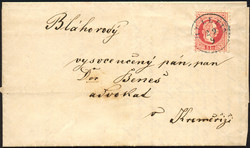 Bláhorodý
vysocеučený pán, pan
Dor Beneš
advokat
v Kroměříži